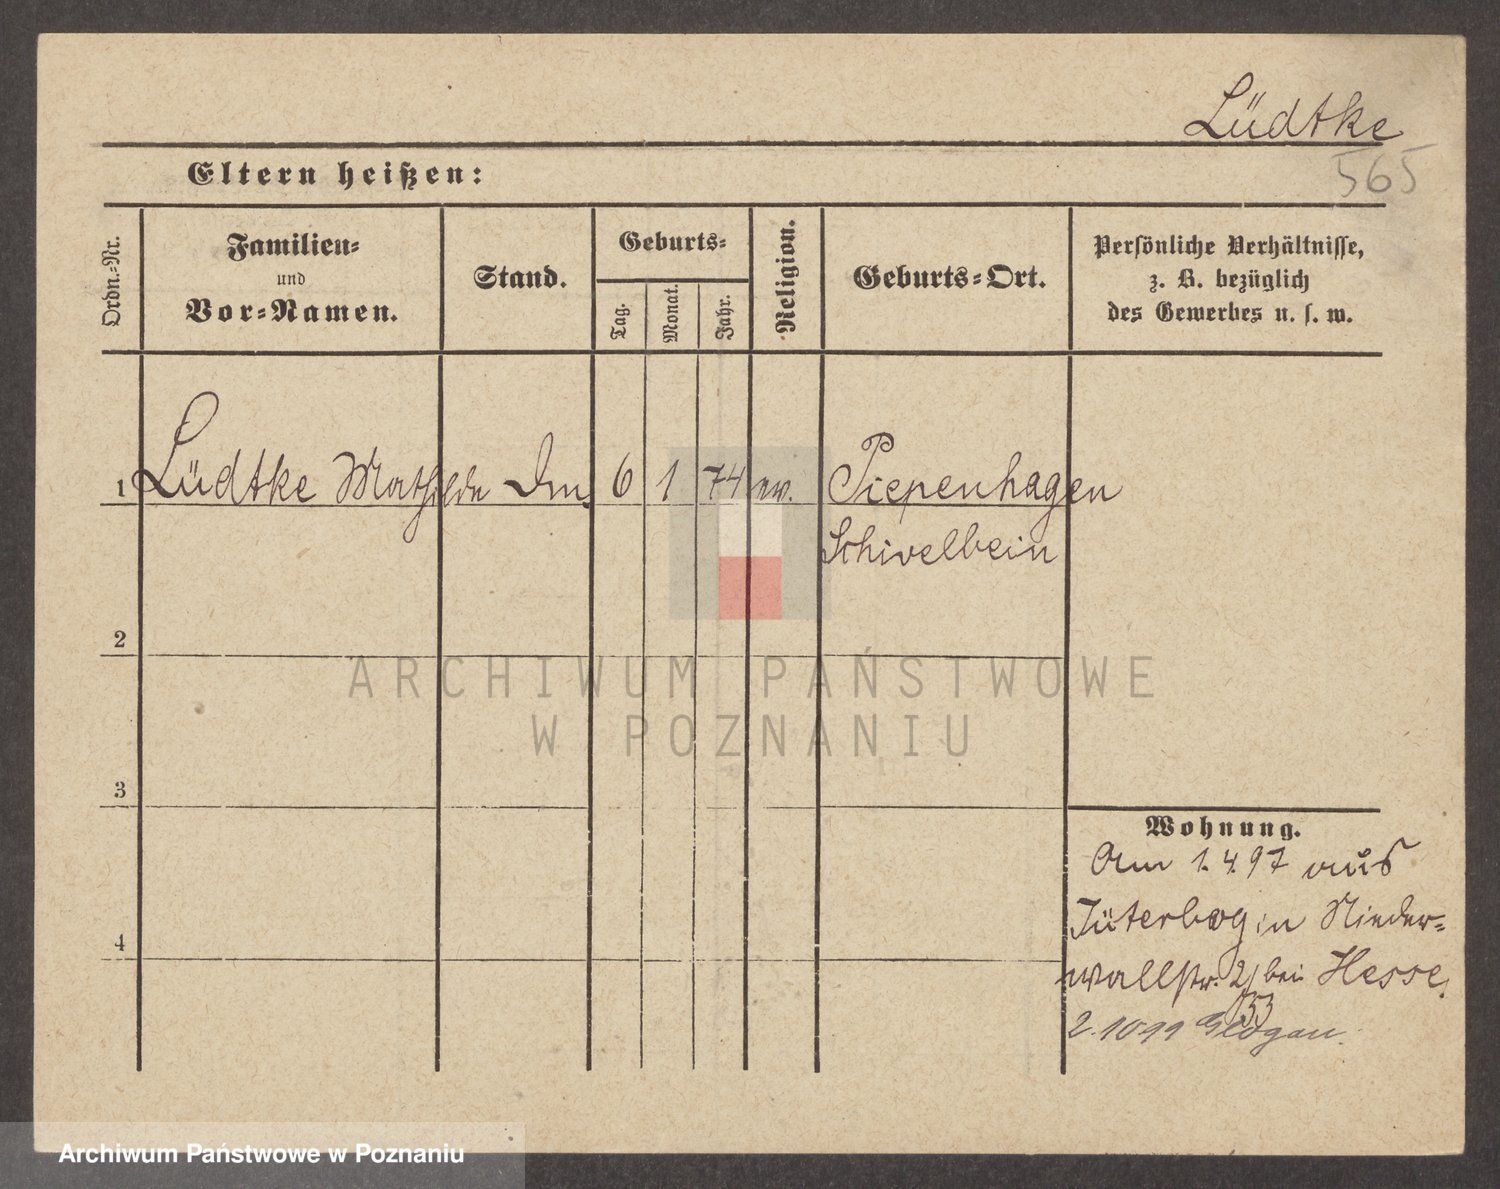 Lüdtke
565
Eltern heißen:
Ordn.=Nr.
Familien=
und
Vor=Namen.
Stand.
Geburts=
Tag.
Monat.
Jahr.
Religion.
Geburts=Ort.
Persönliche Verhältnisse,
z. B. bezüglich
des Gewerbes u. s. w.
1 Lüdtke Mathilde 6 1 74 ev. Piepenhagen
Schivelbein
2
3
4
Wohnung.
Am 1.4.97 aus
Jüterbog in Nieder=
wallstr. 2 bei Hesse.
Glogau.
ARCHIWUM PAŃSTWOWE
W POZNANIU
Archiwum Państwowe w Poznaniu